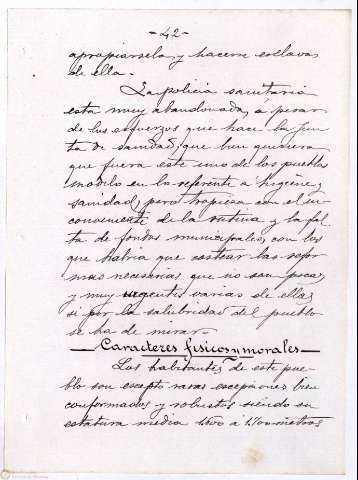 -42-
apropiarsela, y hacerse esclavos
de ella.
La policia sanitaria
esta muy abandonada, á pesar
de los esfuerzos que hace la Jun
ta de sanidad, que bien quisiera
que fuera este uno de los pueblos
modelo en lo referente á higiene y
sanidad, pero tropieza con el in-
conveniente de la rutina y la fal
ta de fondos municipales, con los
que habria que costear las refor
mas necesarias que no son pocas
y muy urgentes varias de ellas
si por la salubridad del pueblo
se ha de mirar.
Caracteres fisicos y morales
Los habitantes de este pue-
blo son escepto raras escepciones bien
conformados y robustos siendo su
estatura media 1600 á 1700 metros